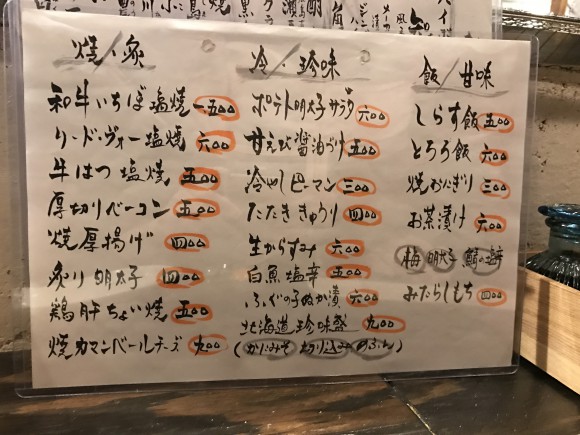 焼・炙
和牛いちぼ塩焼 一五〇〇
リードヴォー塩焼 六〇〇
牛はつ塩焼 五〇〇
厚切りベーコン 五〇〇
焼厚揚げ 四〇〇
炙り明太子 四〇〇
鶏肝ちょい焼 五〇〇
焼カマンベールチーズ 九〇〇
冷・珍味
ポテト明太子サラダ 六〇〇
甘えび醤油づけ 五〇〇
冷やしピーマン 三〇〇
たたききゅうり 四〇〇
生からすみ 六〇〇
白魚塩辛 五〇〇
ふぐの子ぬか漬 六〇〇
北海道珍味盛 九〇〇
(かにみそ 切り込み めふん)
飯/甘味
しらす飯 五〇〇
とろろ飯 六〇〇
焼むにぎり 三〇〇
お茶漬け 六〇〇
梅 明太子
みたらしもち 四〇〇